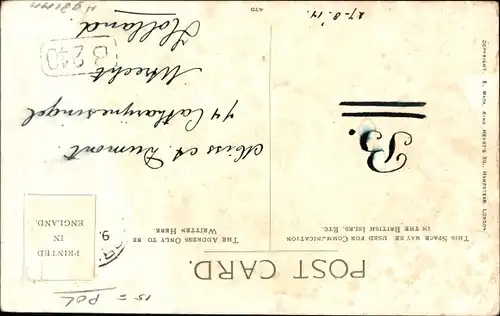 POST CARD.
THIS SPACE MAY BE USED FOR COMMUNICATION
IN THE BRITISH ISLES, ETC.
THE ADDRESS ONLY TO BE
WRITTEN HERE
PRINTED
IN
ENGLAND.
B.
Miss A. Dumont.
74 Catharynesingel
Utrecht
Holland.
B 240
27-8.'17.
470
COPYRIGHT. E. WION, KING HENRY'S RD., HAMPSTEAD, LONDON
15 = POL
9.